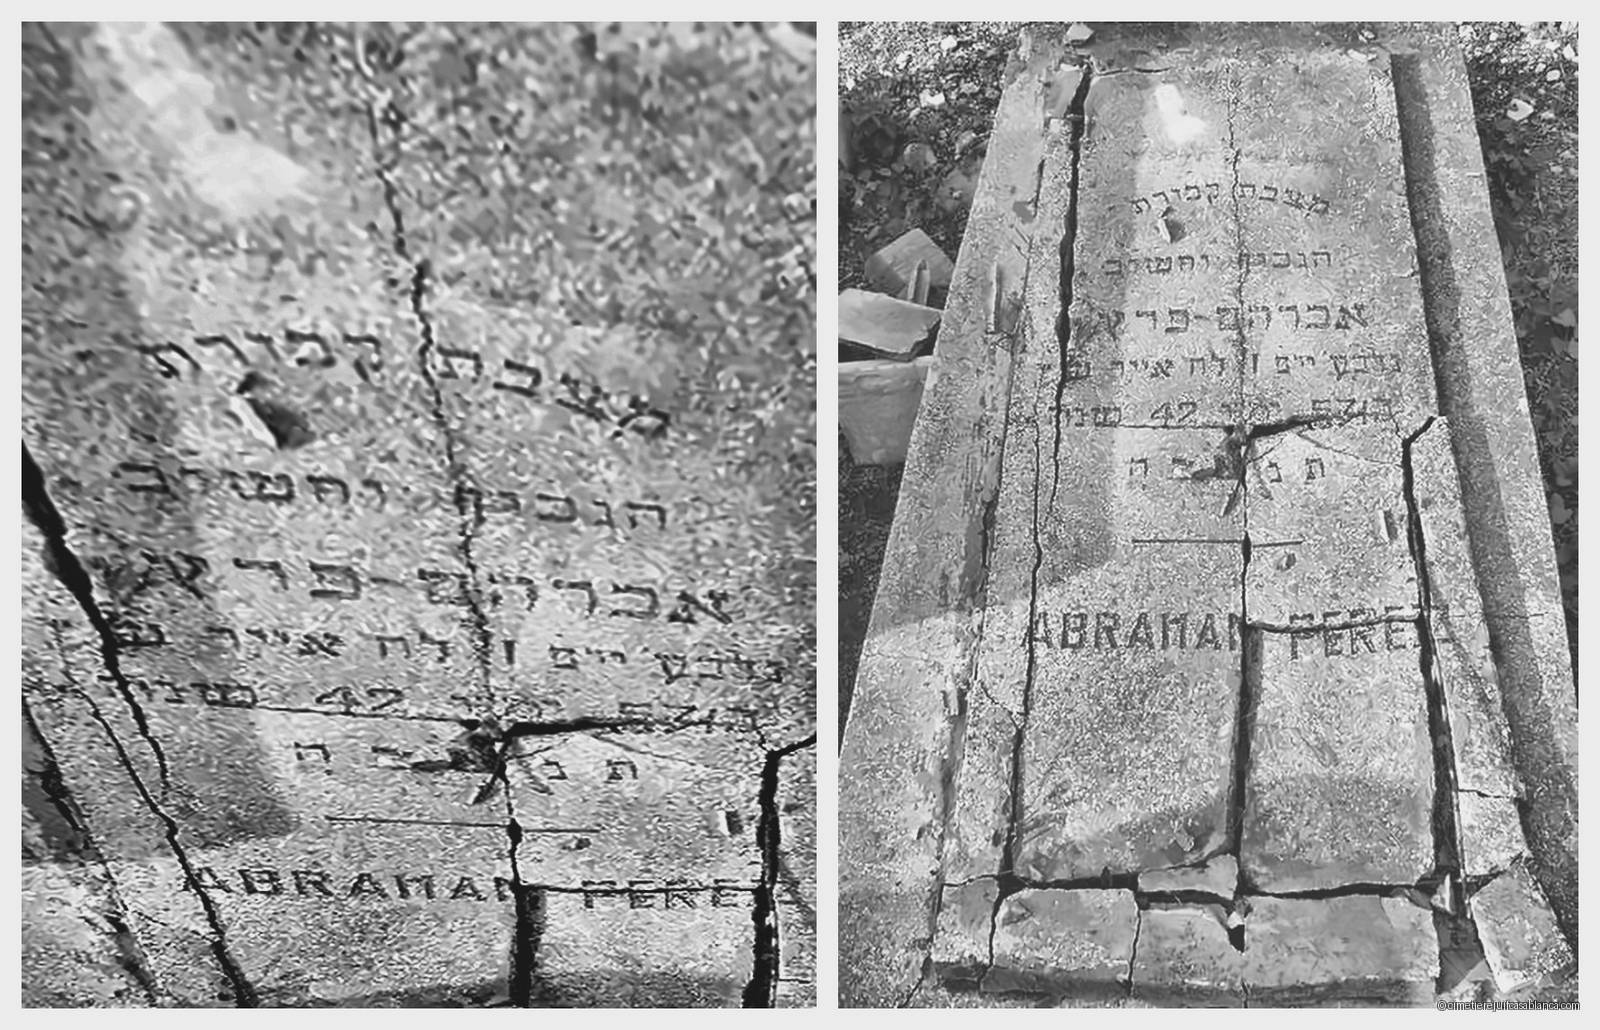 מצבת קבורת
הנכבד וחשוב
אברהם פרץ
נלבע״ ו׳ לח אייר
42 שנים
ת נ צ ב ה
ABRAHAM PEREZ
מצבת קבורת
הנכבד וחשוב
אברהם פרץ
נלבע״ ו׳ לח אייר
5743 42 שנים
ת נ צ ב ה
ABRAHAM PEREZ
©cimetierejuifcasablanca.com